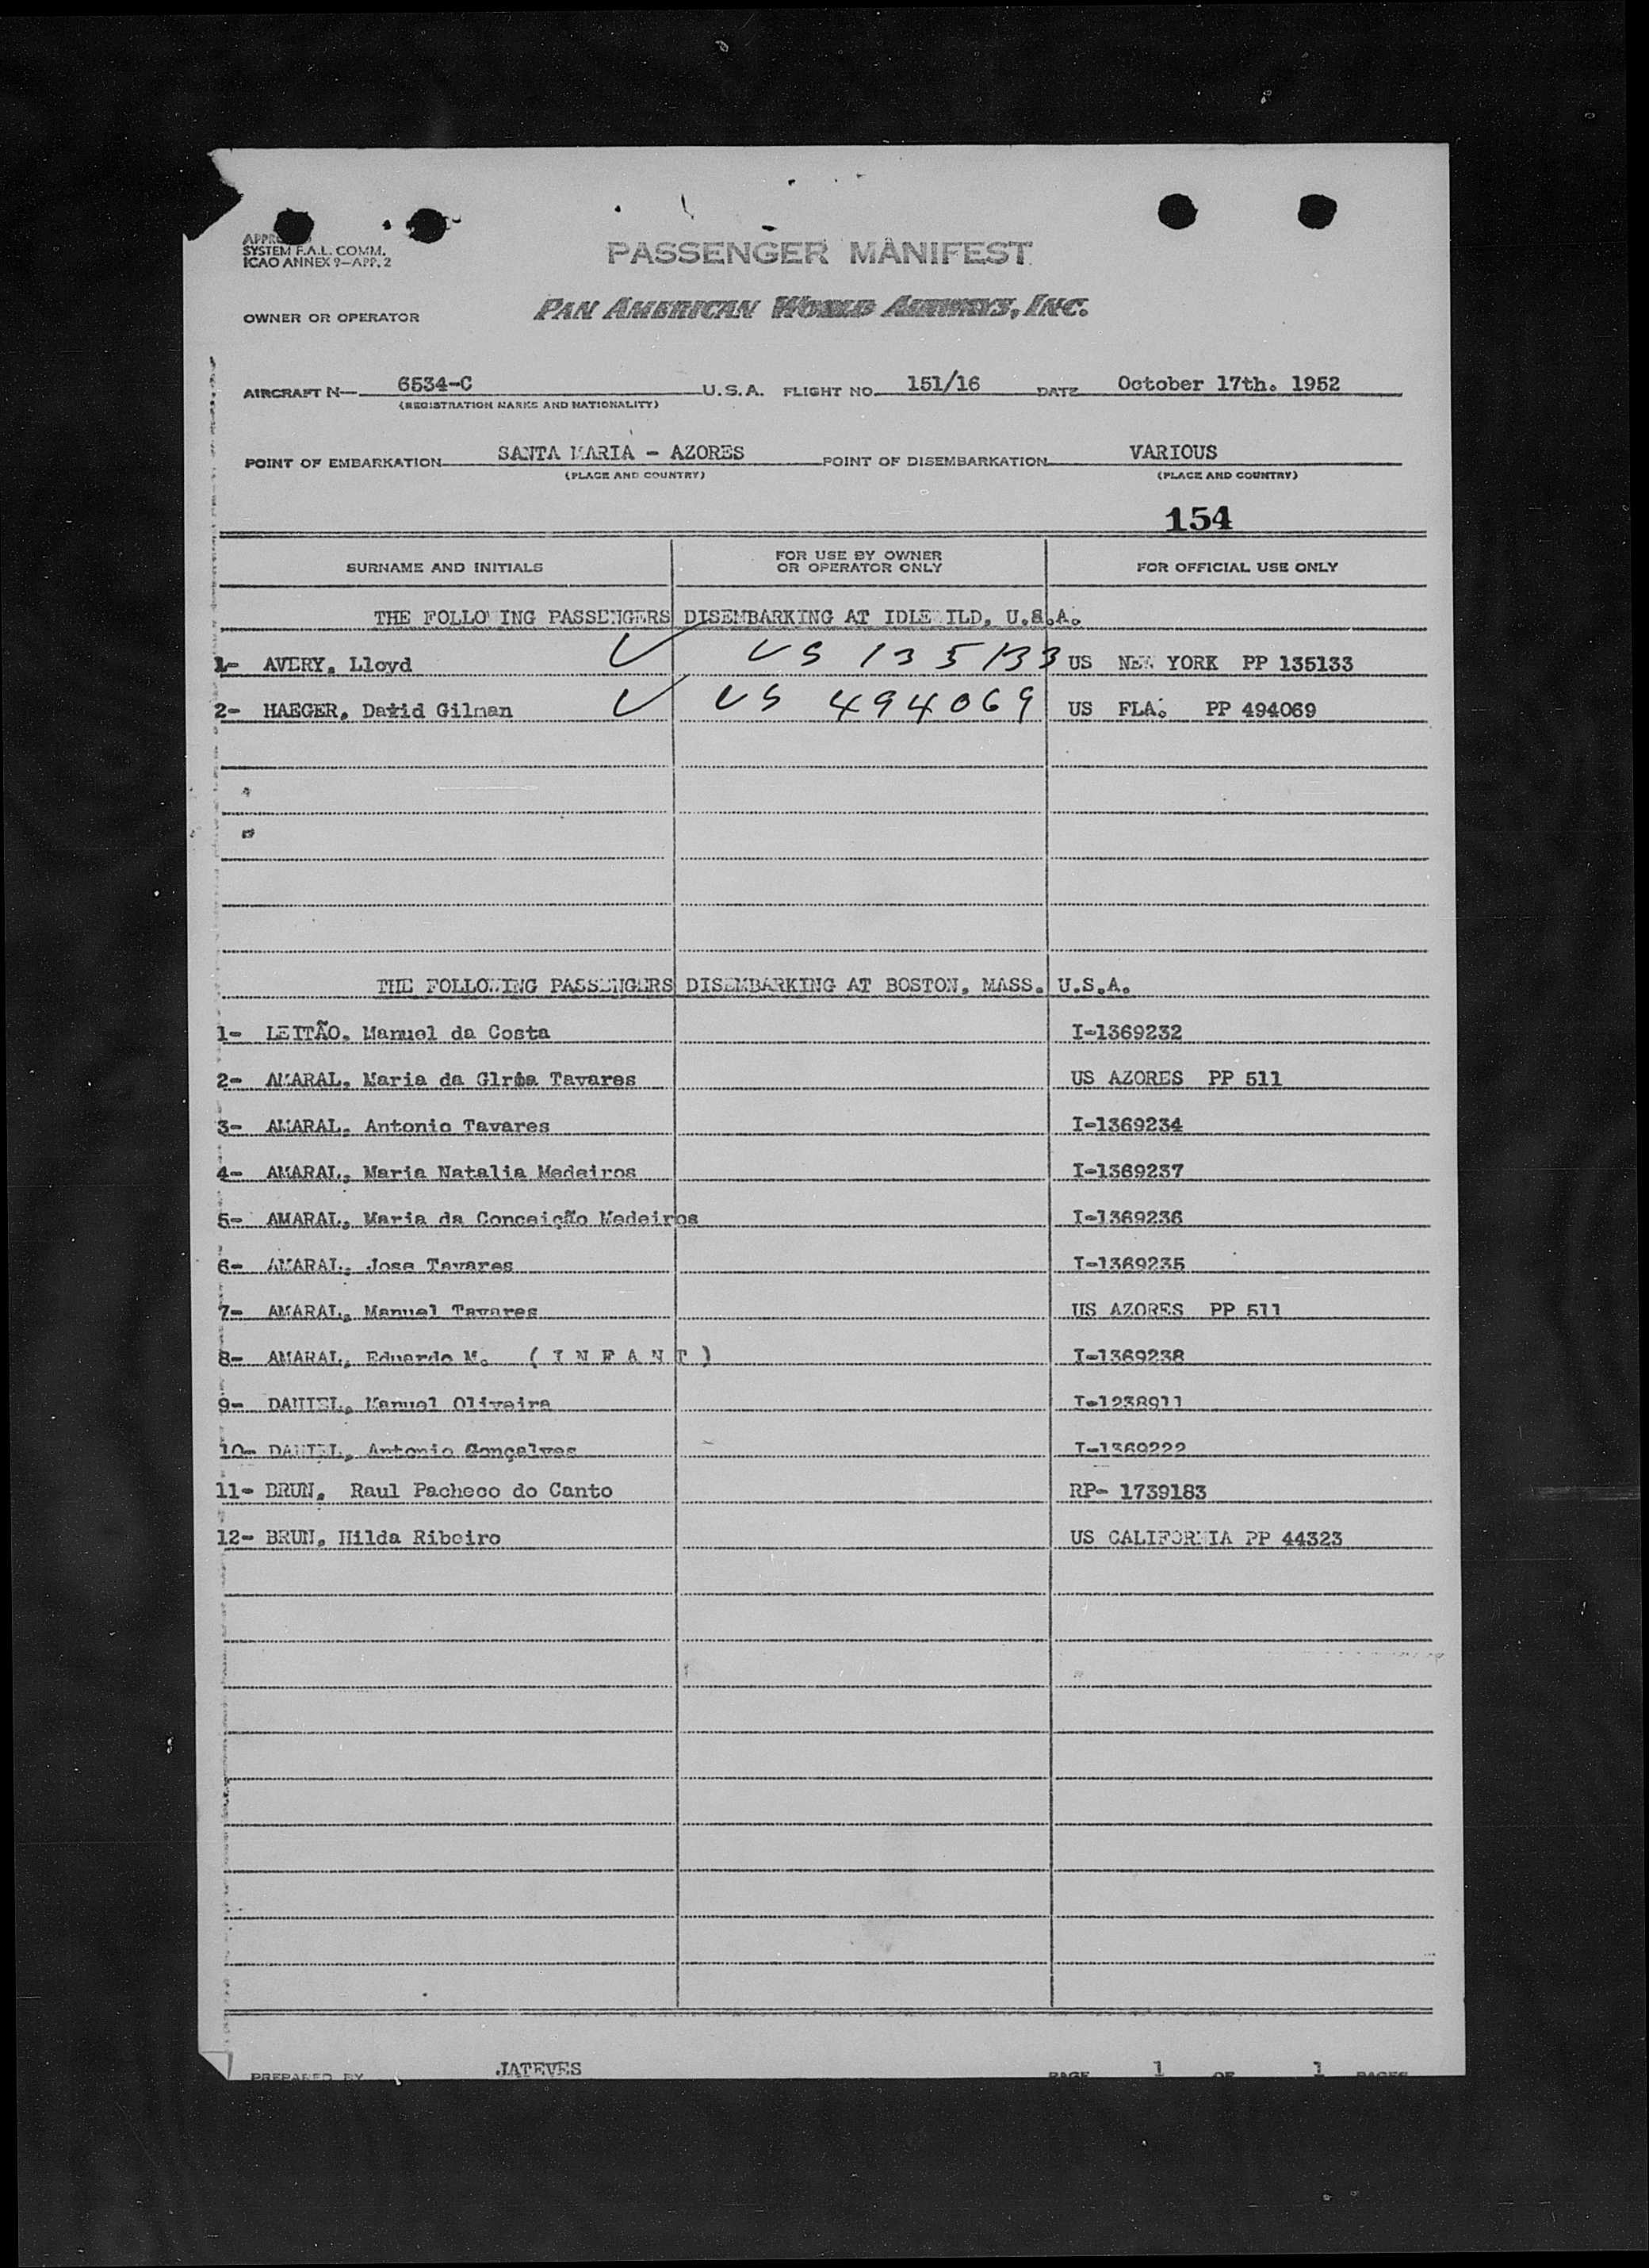 SYSTEM F.A.L. COMM.
ICAO ANNEX 9—APP. 2
PASSENGER MANIFEST
OWNER OR OPERATOR PAN AMERICAN WORLD AIRWAYS, INC.
AIRCRAFT N— 6534-C U.S.A. FLIGHT NO. 151/16 DATE October 17th. 1952
(REGISTRATION MARKS AND NATIONALITY)
POINT OF EMBARKATION SANTA MARIA - AZORES POINT OF DISEMBARKATION VARIOUS
(PLACE AND COUNTRY) (PLACE AND COUNTRY)
154
SURNAME AND INITIALS FOR USE BY OWNER OR OPERATOR ONLY FOR OFFICIAL USE ONLY
THE FOLLOWING PASSENGERS DISEMBARKING AT IDLEWILD, U.S.A.
1- AVERY, Lloyd ✓ US 135133 US NEW YORK PP 135133
2- HAEGER, David Gilman ✓ US 494069 US FLA. PP 494069
THE FOLLOWING PASSENGERS DISEMBARKING AT BOSTON, MASS. U.S.A.
1- LEITÃO, Manuel da Costa I-1369232
2- AMARAL, Maria da Tavares US AZORES PP 511
3- AMARAL, Antonio Tavares I-1369234
4- AMARAL, Maria Natalia Medeiros I-1369237
5- AMARAL, Maria da Conceição Medeiros I-1369236
6- AMARAL, Jose Tavares I-1369235
7- AMARAL, Manuel Tavares US AZORES PP 511
8- AMARAL, Eduardo M. ( I N F A N T ) I-1369238
9- DANIEL, Manuel Oliveira I-1238911
10- DANIEL, Antonio Gonçalves I-1369222
11- BRUN, Raul Pacheco do Canto RP- 1739183
12- BRUN, Hilda Ribeiro US CALIFORNIA PP 44323
PREPARED BY JATEVES PAGE 1 OF 1 PAGES